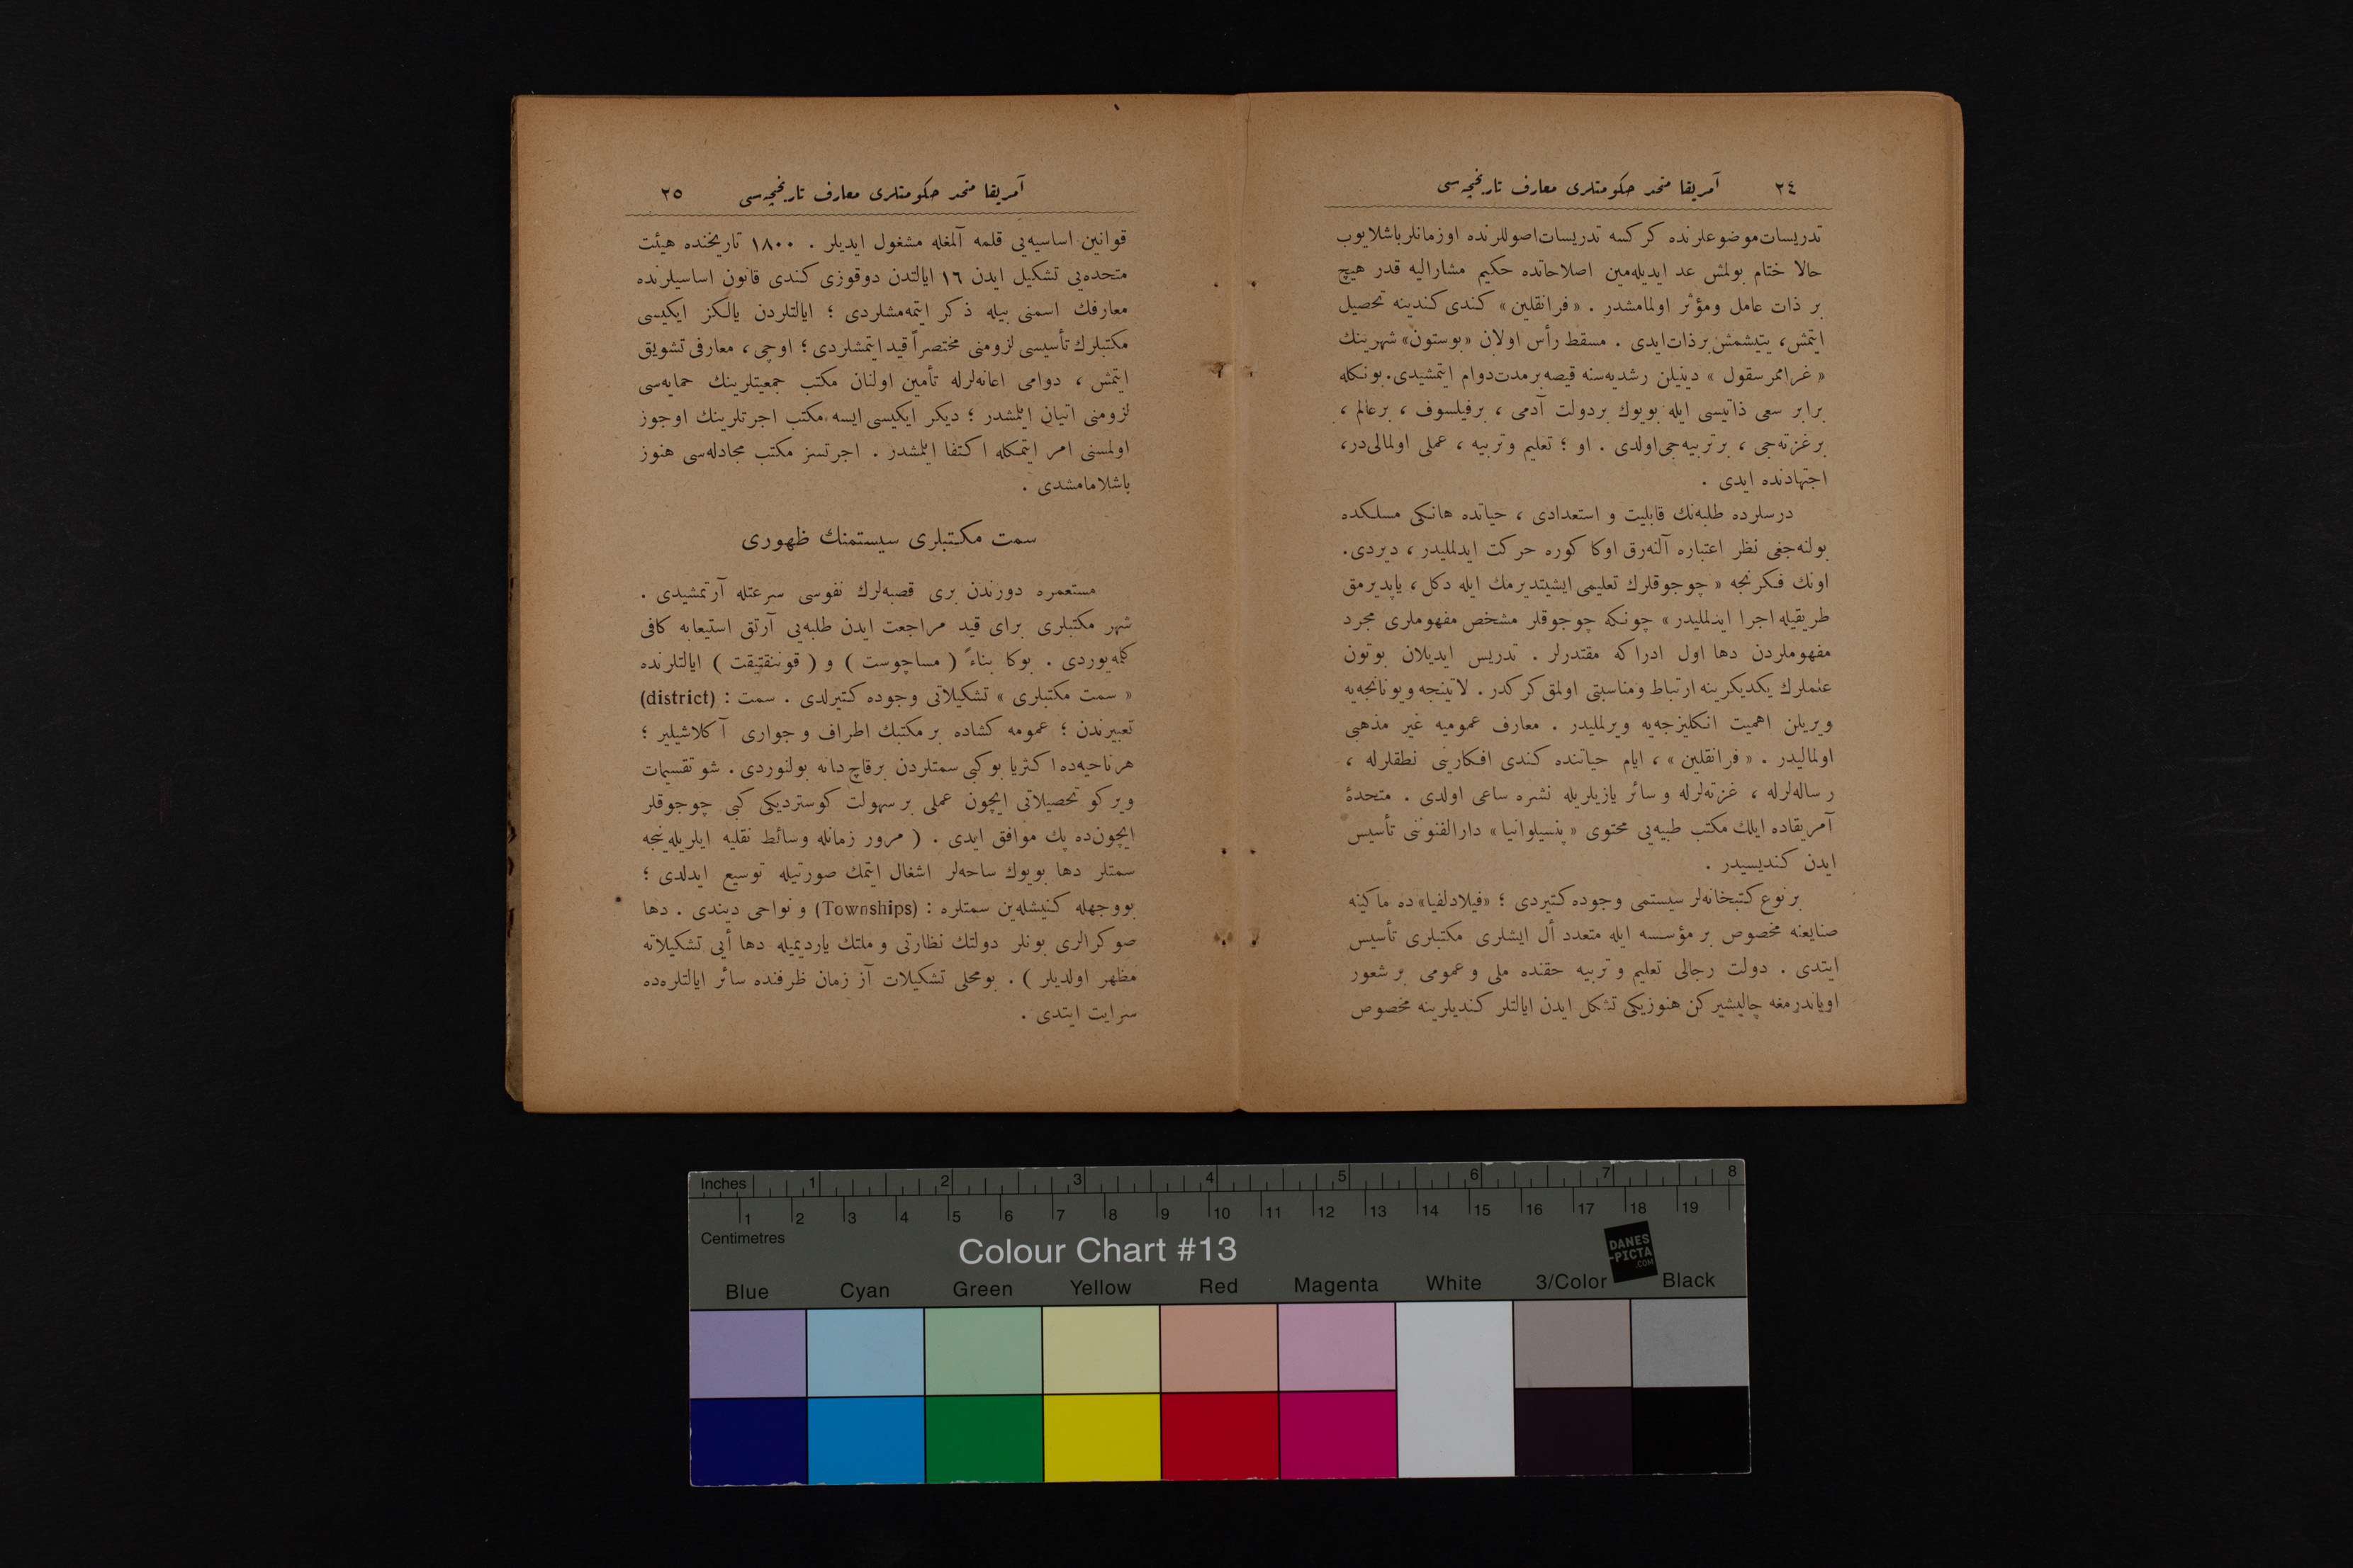 ٢٤ آمریقا متحد حکومتلری معارف تاریخچه‌سی
تدریسات موضوعلرنده کرکسه تدریسات اصوللرنده اوزمانلر باشلایوب
حالا ختام بولمش عد ایدیله‌مین اصلاحاتده حکیم مشارالیه قدر هیچ
بر ذات عامل ومؤثر اولمامشدر . « فرانقلین » کندی کندینه تحصیل
ایتمش، یتیشمش برذات ایدی . مسقط رأس اولان «بوستون» شهرینك
« غرامر سقول » دینیلن رشدیه‌سنه قیصه برمدت دوام ایتمشیدی. بونکله
برابر سعی ذاتیسی ایله بویوك بردولت آدمی ، برفیلسوف ، برعالم ،
برغزته‌جی ، برتربیه‌جی اولدی . او ؛ تعلیم وتربیه ، عملی اولمالی‌در،
اجتهادنده ایدی .
درسلرده طلبه‌نك قابلیت و استعدادی ، حیاتده هانکی مسلکده
بولنه‌جغی نظر اعتباره آلنه‌رق اوکا کوره حرکت ایدلملیدر ، دیردی.
اونك فکرنجه « چوجوقلرك تعلیمی ایشیتدیرمك ایله دکل ، یاپدیرمق
طریقیله اجرا ایدلملیدر » چونکه چوجوقلر مشخص مفهوملری مجرد
مفهوملردن دها اول ادراکه مقتدرلر . تدریس ایدیلان بوتون
علملرك یکدیکرینه ارتباط ومناسبتی اولمق کرکدر . لاتینجه ویونانجه‌یه
ویریلن اهمیت انکلیزجه‌یه ویرلملیدر . معارف عمومیه غیر مذهبی
اولمالیدر . « فرانقلین » ، ایام حیاتنده کندی افکارینی نطقلرله ،
رساله‌لرله ، غزته‌لرله و سائر یازیلریله نشره ساعی اولدی . متحدۀ
آمریقاده ایلك مکتب طبیه‌یی محتوی « پنسیلوانیا » دارالفنوننی تأسیس
ایدن کندیسیدر .
برنوع کتبخانه‌لر سیستمی وجوده کتیردی ؛ «فیلادلفیا» ده ماکینه
صنایعنه مخصوص بر مؤسسه ایله متعدد أل ایشلری مکتبلری تأسیس
ایتدی . دولت رجالی تعلیم و تربیه حقنده ملی و عمومی بر شعور
اویاندرمغه چالیشیرکن هنوزیکی تشکل ایدن ایالتلر کندیلرینه مخصوص
آمریقا متحد حکومتلری معارف تاریخچه‌سی ٢٥
قوانین اساسیه‌یی قلمه آلمغله مشغول ایدیلر . ١٨٠٠ تاریخنده هیئت
متحده‌یی تشکیل ایدن ١٦ ایالتدن دوقوزی کندی قانون اساسیلرنده
معارفك اسمنی بیله ذکر ایتمه‌مشلردی ؛ ایالتلردن یالکز ایکیسی
مکتبلرك تأسیسی لزومنی مختصراً قید ایتمشلردی ؛ اوچی ، معارفی تشویق
ایتمش ، دوامی اعانه‌لرله تأمین اولنان مکتب جمعیتلرینك حمایه‌سی
لزومنی اتیان ایلمشدر ؛ دیکر ایکیسی ایسه مکتب اجرتلرینك اوجوز
اولمسنی امر ایتمکله اکتفا ایلمشدر . اجرتسز مکتب مجادله‌سی هنوز
باشلامامشدی .
سمت مکتبلری سیستمنك ظهوری
مستعمره دورندن بری قصبه‌لرك نفوسی سرعتله آرتمشیدی .
شهر مکتبلری برای قید مراجعت ایدن طلبه‌یی آرتق استیعابه کافی
کلمه‌یوردی . بوکا بناءً ( مساچوست ) و ( قوننقتیقت ) ایالتلرنده
« سمت مکتبلری » تشکیلاتی وجوده کتیرلدی . سمت : (district)
تعبیرندن ؛ عمومه کشاده بر مکتبك اطراف و جواری آکلاشیلیر ؛
هرناحیه‌ده اکثریا بوکبی سمتلردن برقاچ دانه بولنوردی . شو تقسیمات
ویرکو تحصیلاتی ایچون عملی بر سهولت کوستردیکی کبی چوجوقلر
ایچون‌ده پك موافق ایدی . ( مرور زمانله وسائط نقلیه ایلریله‌ینجه
سمتلر دها بویوك ساحه‌لر اشغال ایتمك صورتیله توسیع ایدلدی ؛
بووجهله کنیشله‌ین سمتلره : (Townships) و نواحی دیندی . دها
صوکرالری بونلر دولتك نظارتی و ملتك یاردیمیله دها أیی تشکیلاته
مظهر اولدیلر ) . بومحلی تشکیلات آز زمان ظرفنده سائر ایالتلره‌ده
سرایت ایتدی .
Inches 1 2 3 4 5 6 7 8
1 2 3 4 5 6 7 8 9 10 11 12 13 14 15 16 17 18 19
Centimetres
Colour Chart #13
DANES
-PICTA
.COM
Blue Cyan Green Yellow Red Magenta White 3/Color Black